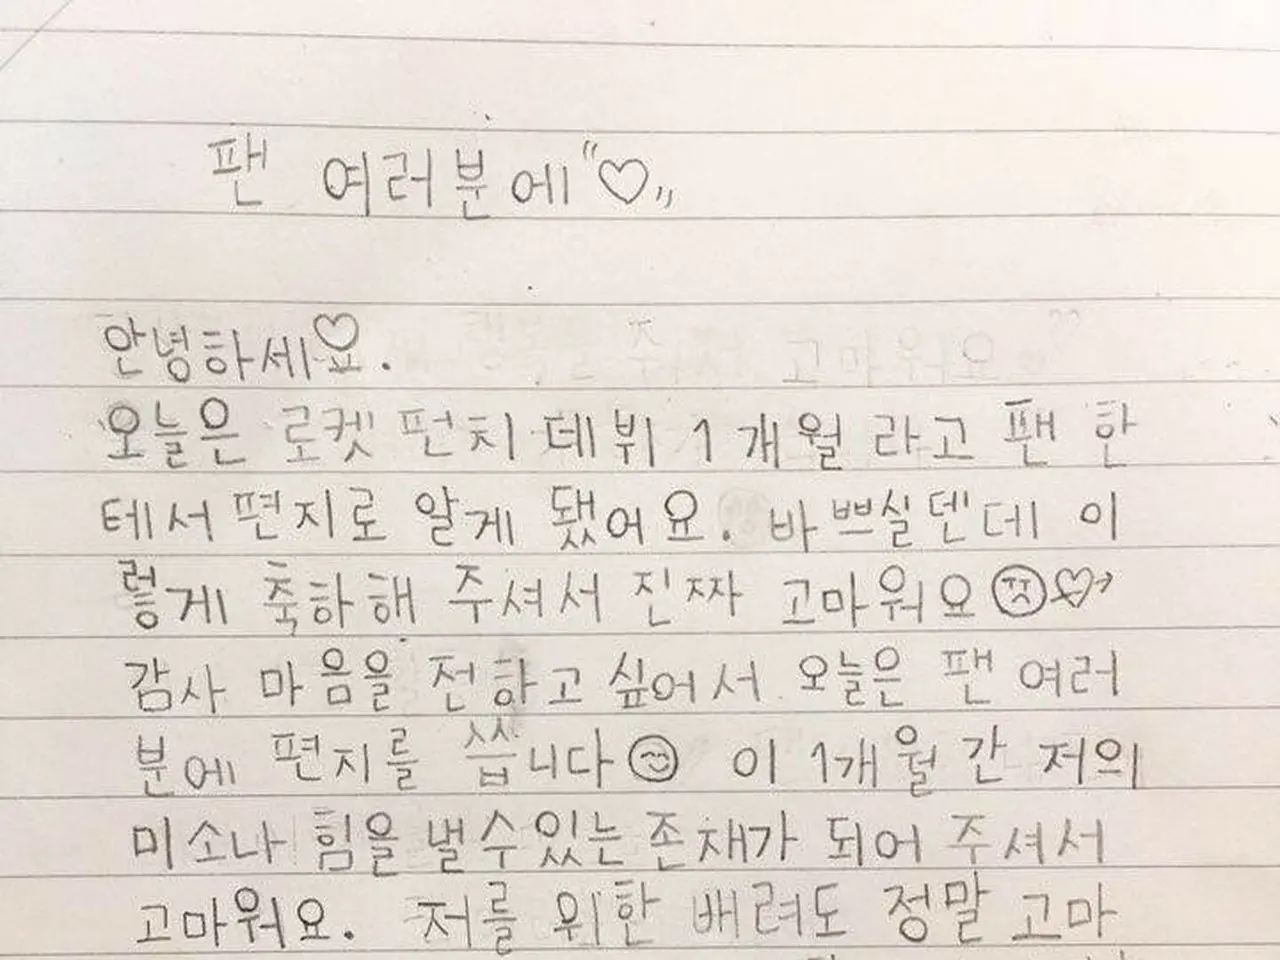 팬 여러분에"♡"
안녕하세요.
오늘은 로켓 펀치 데뷔 1개월 라고 팬 한
테서 편지로 알게 됐어요. 바쁘실덴데 이
렇게 축하해 주셔서 진짜 고마워요
감사 마음을 전하고 싶어서 오늘은 팬 여러
분에 편지를 씁니다 이 1개월 간 저의
미소나 힘을 낼수있는 존재가 되어 주셔서
고마워요. 저를 위한 배려도 정말 고마